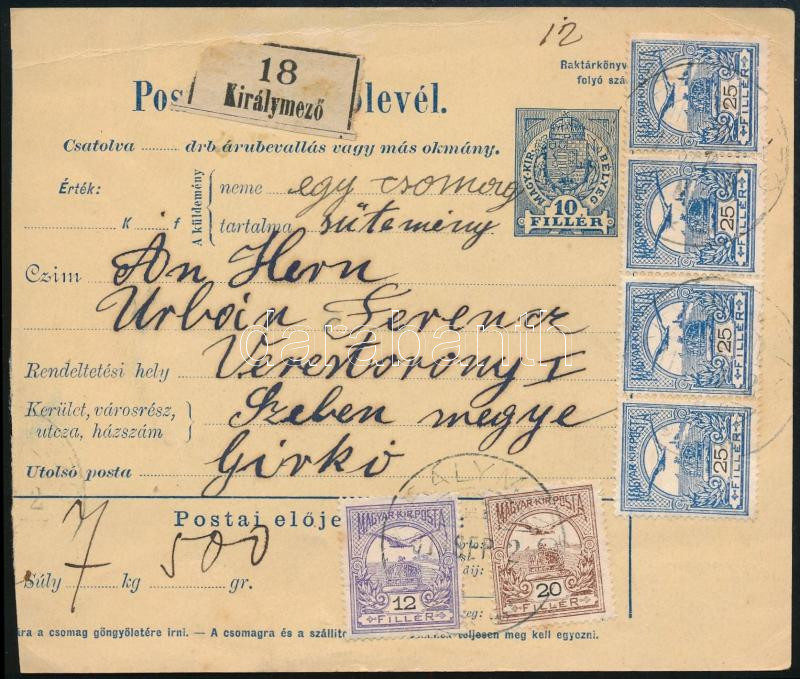 12
Raktárkönyv
folyó szá
18
Királymező
Pos
levél.
Csatolva ........ drb árubevallás vagy más okmány.
Érték:
A küldemény
neve egy csomag
K f
tartalma sütemény
MAGY. KIR. BÉLYEG
10
FILLÉR
Czim An Hern
Urbán Ferencz
Rendeltetési hely Verestorony I
Kerület, városrész,
utcza, házszám
Szeben megye
Utolsó posta Girkó
Postai elője
7 500
Súly kg gr.
MAGYAR KIR. POSTA
25
FILLÉR
MAGYAR KIR. POSTA
25
FILLÉR
MAGYAR KIR. POSTA
25
FILLÉR
MAGYAR KIR. POSTA
25
FILLÉR
MAGYAR KIR. POSTA
12
FILLÉR
MAGYAR KIR. POSTA
20
FILLÉR
SEP
díj:
zeg:
ára a csomag göngyöletére irni. — A csomagra és a szállít
teljesen meg kell egyezni.
darabanth